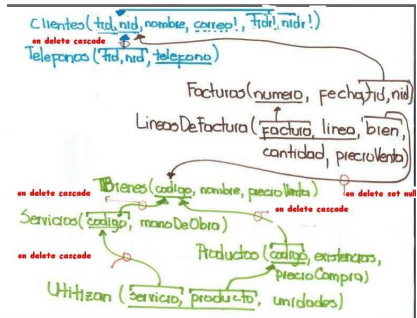 Clientes (tid, nid, nombre, correo!, tidr!, nidr!)
on delete cascade
Telefonos (tid, nid, telefono)
Facturas (numero, fecha, tid, nid)
LineasDeFactura (factura, linea, bien,
cantidad, precioVenta)
on delete cascade
Bienes (codigo, nombre, precioVenta)
on delete set null
Servicios (codigo, manoDeObra)
on delete cascade
on delete cascade
Productos (codigo, existencias,
precioCompra)
Utilizan (servicio, producto, unidades)